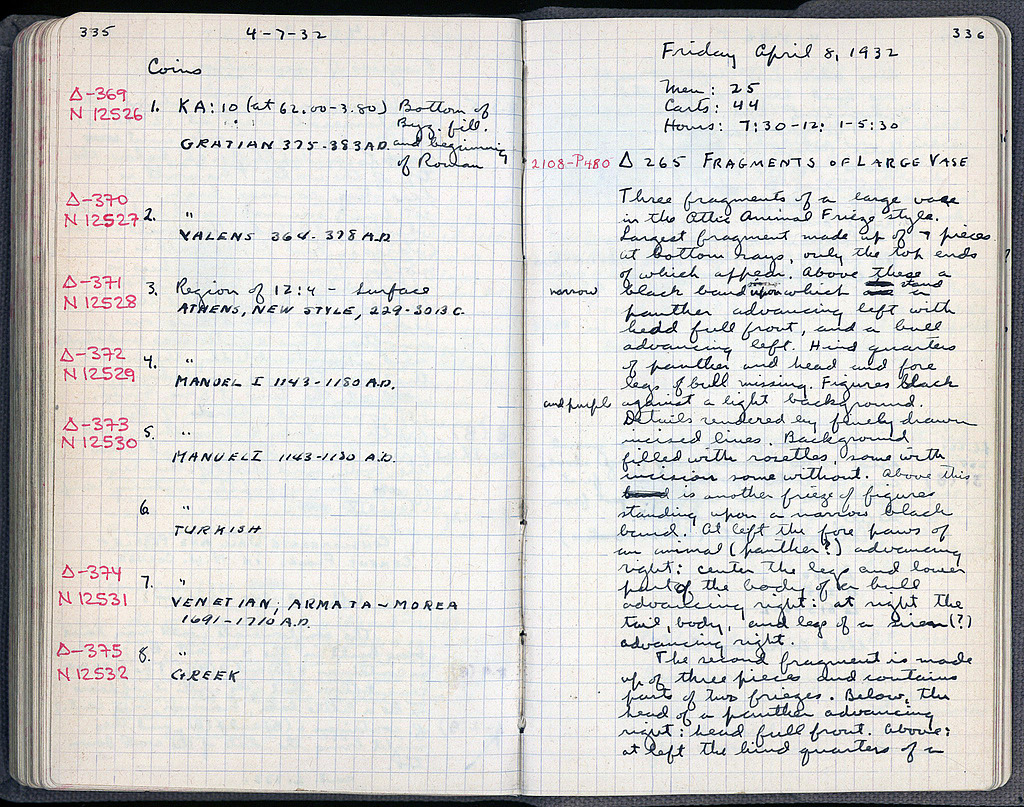 335
4-7-32
Coins
Δ-369
N 12526
1. KA: 10 (at 62.00-3.80) Bottom of
Byz. fill.
GRATIAN 375-383 A.D. and beginning
of Roman
Δ-370
N 12527
2. "
VALENS 364-378 A.D.
Δ-371
N 12528
3. Region of 12:4 - Surface
ATHENS, NEW STYLE, 229-30 B.C.
Δ-372
N 12529
4. "
MANUEL I 1143-1180 A.D.
Δ-373
N 12530
5. "
MANUEL I 1143-1180 A.D.
6. "
TURKISH
Δ-374
N 12531
7. "
VENETIAN; ARMATA-MOREA
1691-1710 A.D.
Δ-375
N 12532
8. "
GREEK
336
Friday April 8, 1932
Men: 25
Carts: 44
Hours: 7:30-12: 1-5:30
2108-P480 Δ 265 FRAGMENTS OF LARGE VASE
Three fragments of a large vase
in the Attic Animal Frieze style.
Largest fragment made up of 7 pieces
at bottom rays, only the top ends
of which appear. Above these a
narrow black band upon which stand a
panther advancing left with
head full front, and a bull
advancing left. Hind quarters
of panther and head and fore
legs of bull missing. Figures black
and purple against a light background.
Details rendered by finely drawn
incised lines. Background
filled with rosettes, some with
incision some without. Above this
is another frieze of figures
standing upon a narrow black
band. At left the fore paws of
an animal (panther?) advancing
right: center the legs and lower
part of the body of a bull
advancing right: at right the
tail, body, and legs of a siren(?)
advancing right.
The second fragment is made
up of three pieces and contains
parts of two friezes. Below, the
head of a panther advancing
right: head full front. Above:
at left the hind quarters of a